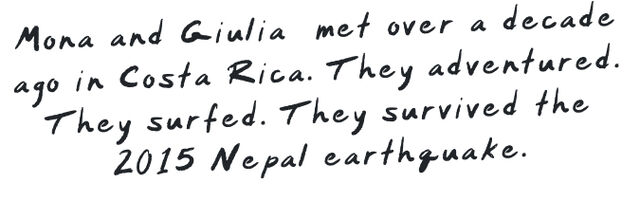 Mona and Giulia met over a decade
ago in Costa Rica. They adventured.
They surfed. They survived the
2015 Nepal earthquake.